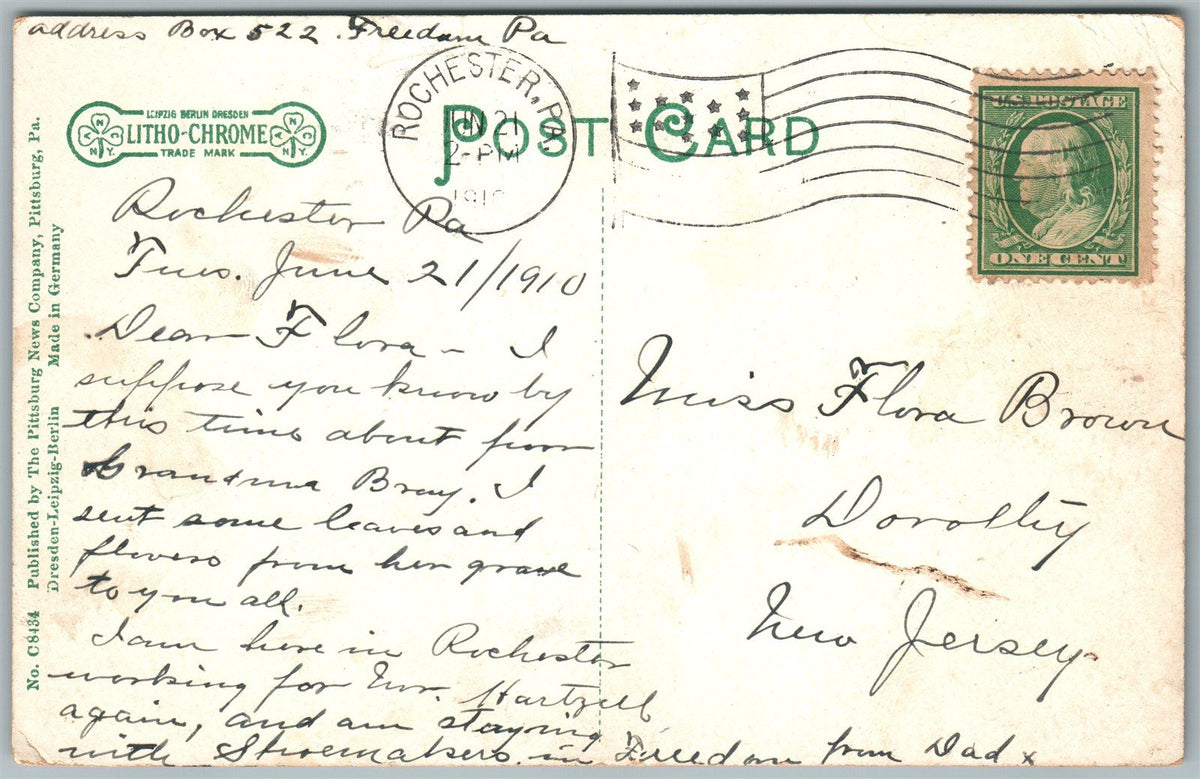 address Box 522. Freedom Pa
LEIPZIG BERLIN DRESDEN
LITHO-CHROME
TRADE MARK
N.Y.
N.Y.
POST CARD
ROCHESTER, PA.
JUN 21
2-PM
191
U.S. POSTAGE
ONE CENT
No. C8434 Published by The Pittsburg News Company, Pittsburg, Pa.
Dresden-Leipzig-Berlin Made in Germany
Rochester Pa
Tues. June 21/1910
Dear Flora - I
suppose you know by
this time about poor
Grandma Bray. I
sent some leaves and
flowers from her grave
to you all.
I am here in Rochester
working for Mr. Hartzell
again, and am staying
with Shoemakers. in Freedom from Dad x
Miss Flora Brown
Dorothy
New Jersey